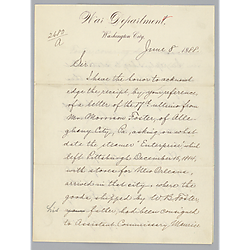 War Department,
Washington City.
2682
A
June 5, 1888.
Sir:
I have the honor to acknowl-
edge the receipt, by your reference,
of a letter of the 17th ultimo from
Mr. Morrison Foster, of Alle-
gheny City, Pa., asking on what
date the steamer "Enterprise," which
left Pittsburgh December 15, 1814,
with stores for New Orleans,
arrived in that city, where the
goods, shipped by W. B. Foster,
his father had been consigned
to Assistant Commissary